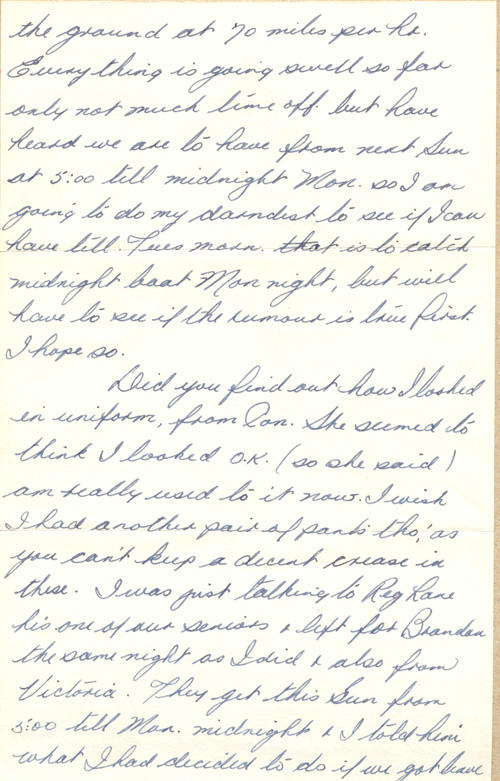 the ground at 70 miles per hr.
Everything is going swell so far
only not much time off. but have
heard we are to have from next Sun
at 5:00 till midnight Mon. so I am
going to do my darndest to see if I can
have till. Tues morn. that is to catch
midnight boat Mon night, but will
have to see if the rumour is true first.
I hope so.
Did you find out how I looked
in uniform, from Con. She seemed to
think I looked O.K. (so she said)
am really used to it now. I wish
I had another pair of pants tho,' as
you can't keep a decent crease in
these. I was just talking to Reg Lane
his one of our seniors & left for Brandon
the same night as I did & also from
Victoria. They get this Sun from
5:00 till Mon. midnight & I told him
what I had decided to do if we got leave